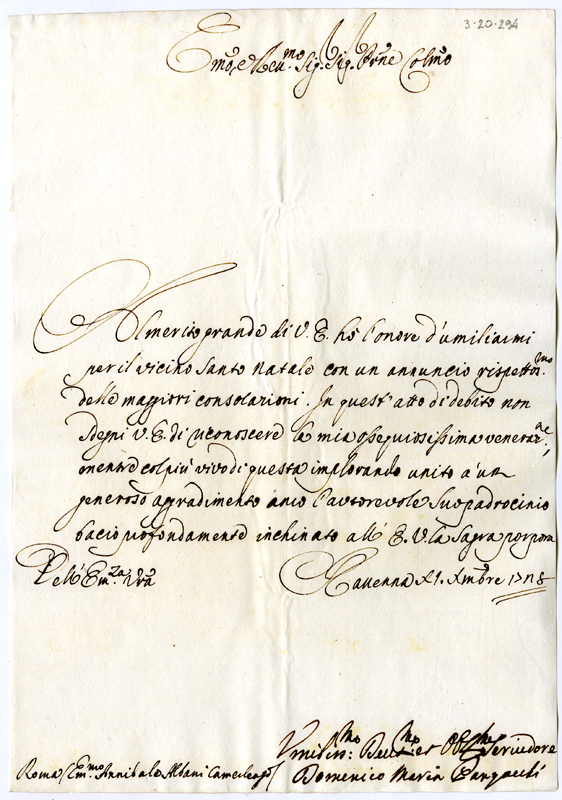 3-20-294
Emo, e Rmo Sig. Sig. Prne Colmo
Al merito grande di V. E. hò l'onore d'umiliarmi
per il vicino Santo Natale con un annuncio rispettosmo
delle maggiori consolazioni. In quest'atto di debito non
sdegni V. E. di riconoscere la mia ossequiosissima venerazne,
mentrè col più vivo di questa implorando unito à un
generoso aggradimento anco l'autorevole suo padrocinio
bacio profondamente inchinato all' E. V. la Sagra porpora
Dell' Emza Vrã
Ravenna 21. Xmbre
Umilismo Devmo et Servidore
Domenico Maria
Roma / Emo Annibale Albani Camerlengo /